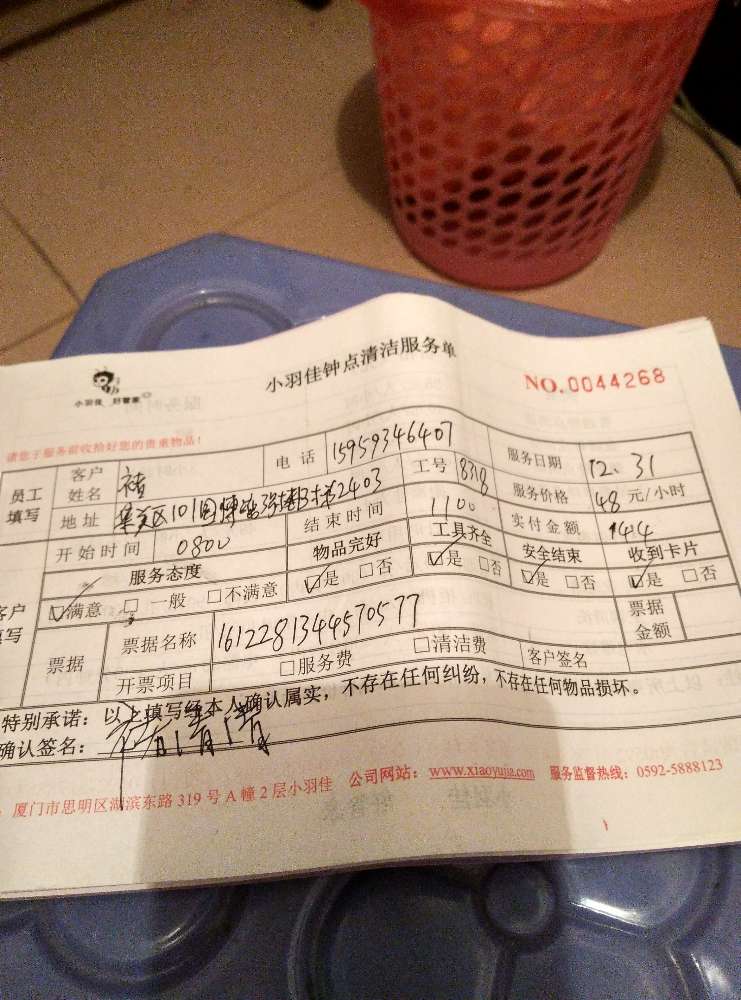 小羽佳钟点清洁服务单
NO.0044268
小羽佳 好管家
请您于服务前收拾好您的贵重物品!
员工填写 客户姓名 褚 电话 15959346407 服务日期 12.31
地址 集美区101 2403 工号 8318 服务价格 48 元/小时
开始时间 0800 结束时间 1100 实付金额 144
服务态度 物品完好 工具齐全 安全结束 收到卡片
客户填写 ☑满意 □一般 □不满意 ☑是 □否 ☑是 □否 ☑是 □否 ☑是 □否
票据 票据名称 1612281344570577 票据金额
开票项目 □服务费 □清洁费 客户签名
特别承诺：以上填写经本人确认属实，不存在任何纠纷，不存在任何物品损坏。
确认签名：褚清清
厦门市思明区湖滨东路 319 号 A 幢 2 层小羽佳 公司网站：www.xiaoyujia.com 服务监督热线：0592-5888123